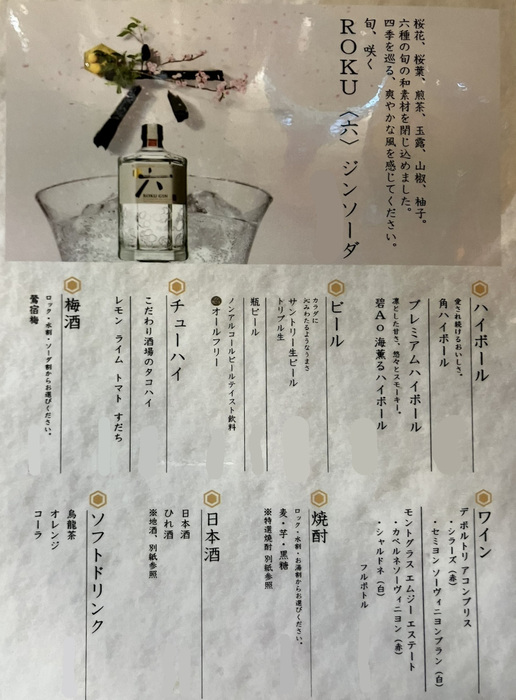 桜花、桜葉、煎茶、玉露、山椒、柚子。
六種の旬の和素材を閉じ込めました。
四季を巡る、爽やかな風を感じてください。
旬、咲く
ROKU〈六〉ジンソーダ
六
ROKU GIN
ハイボール
愛され続けるおいしさ。
角ハイボール
プレミアムハイボール
凛とした甘さ、悠々とスモーキー。
碧Ao 海薫るハイボール
ビール
カラダに
沁みわたるようなうまさ
サントリー生ビール
トリプル生
瓶ビール
ノンアルコールビールテイスト飲料
オールフリー
チューハイ
こだわり酒場のタコハイ
レモン ライム トマト すだち
梅酒
ロック・水割・ソーダ割からお選びください。
鶯宿梅
ワイン
デ ボルトリ アコンプリス
・シラーズ（赤）
・セミヨン ソーヴィニヨンブラン（白）
モントグラス エムジー エステート
・カベルネソーヴィニヨン（赤）
・シャルドネ（白）
フルボトル
焼酎
ロック・水割・お湯割からお選びください。
麦・芋・黒糖
※特選焼酎 別紙参照
日本酒
日本酒
ひれ酒
※地酒、別紙参照
ソフトドリンク
烏龍茶
オレンジ
コーラ